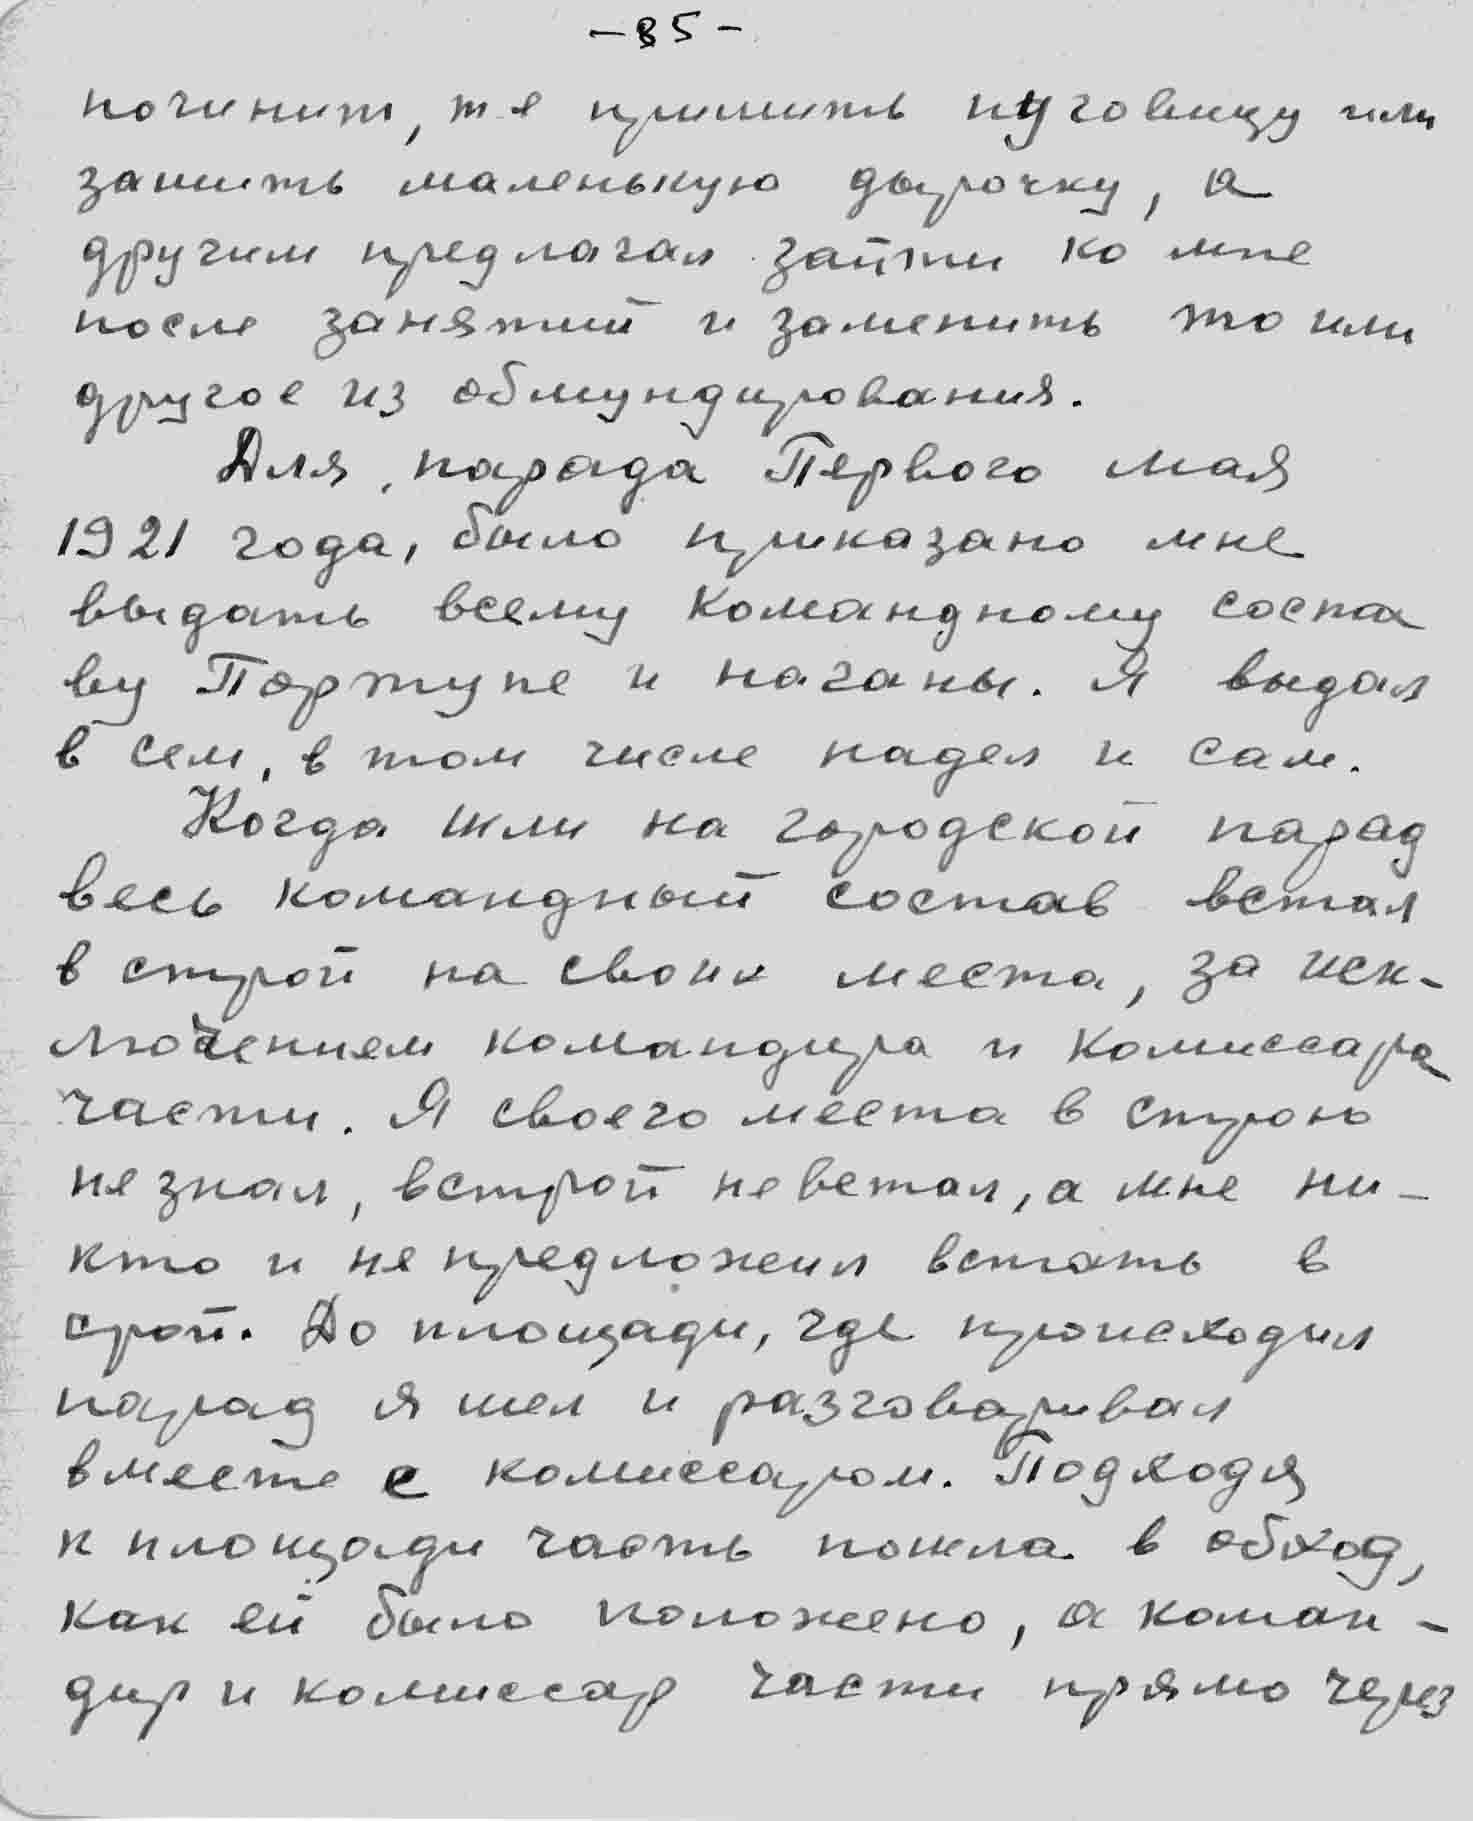 -35-
починит, т.е пришить пуговицу или
зашить маленькую дырочку, а
другим предлагал зайти ко мне
после занятий и заменить то или
другое из обмундирования.
Для, парада Первого мая
1921 года, было приказано мне
выдать всему командному соста
ву Портупе и наганы. Я выдал
в сем, в том числе надел и сам.
Когда шли на городской парад
весь командный состав встал
в строй на своих места, за иск-
лючением командира и комиссара
части. Я своего места в строю
не знал, встрой невстал, а мне ни-
кто и не предложил встать в
срой. До площади, где происходил
парад я шел и разговаривал
вместе с комиссаром. Подходя
к площади часть пошла в обход,
как ей было положено, а коман-
дир и комиссар части прямо через